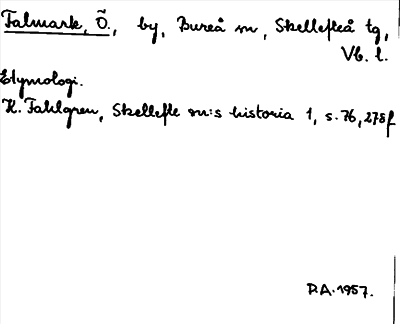 Falmark, Ö., by, Bureå sn, Skellefteå tg,
Vb. l.
Etymologi.
K. Fahlgren, Skellefte sn:s historia 1, s. 76, 278f
R.A. 1957.